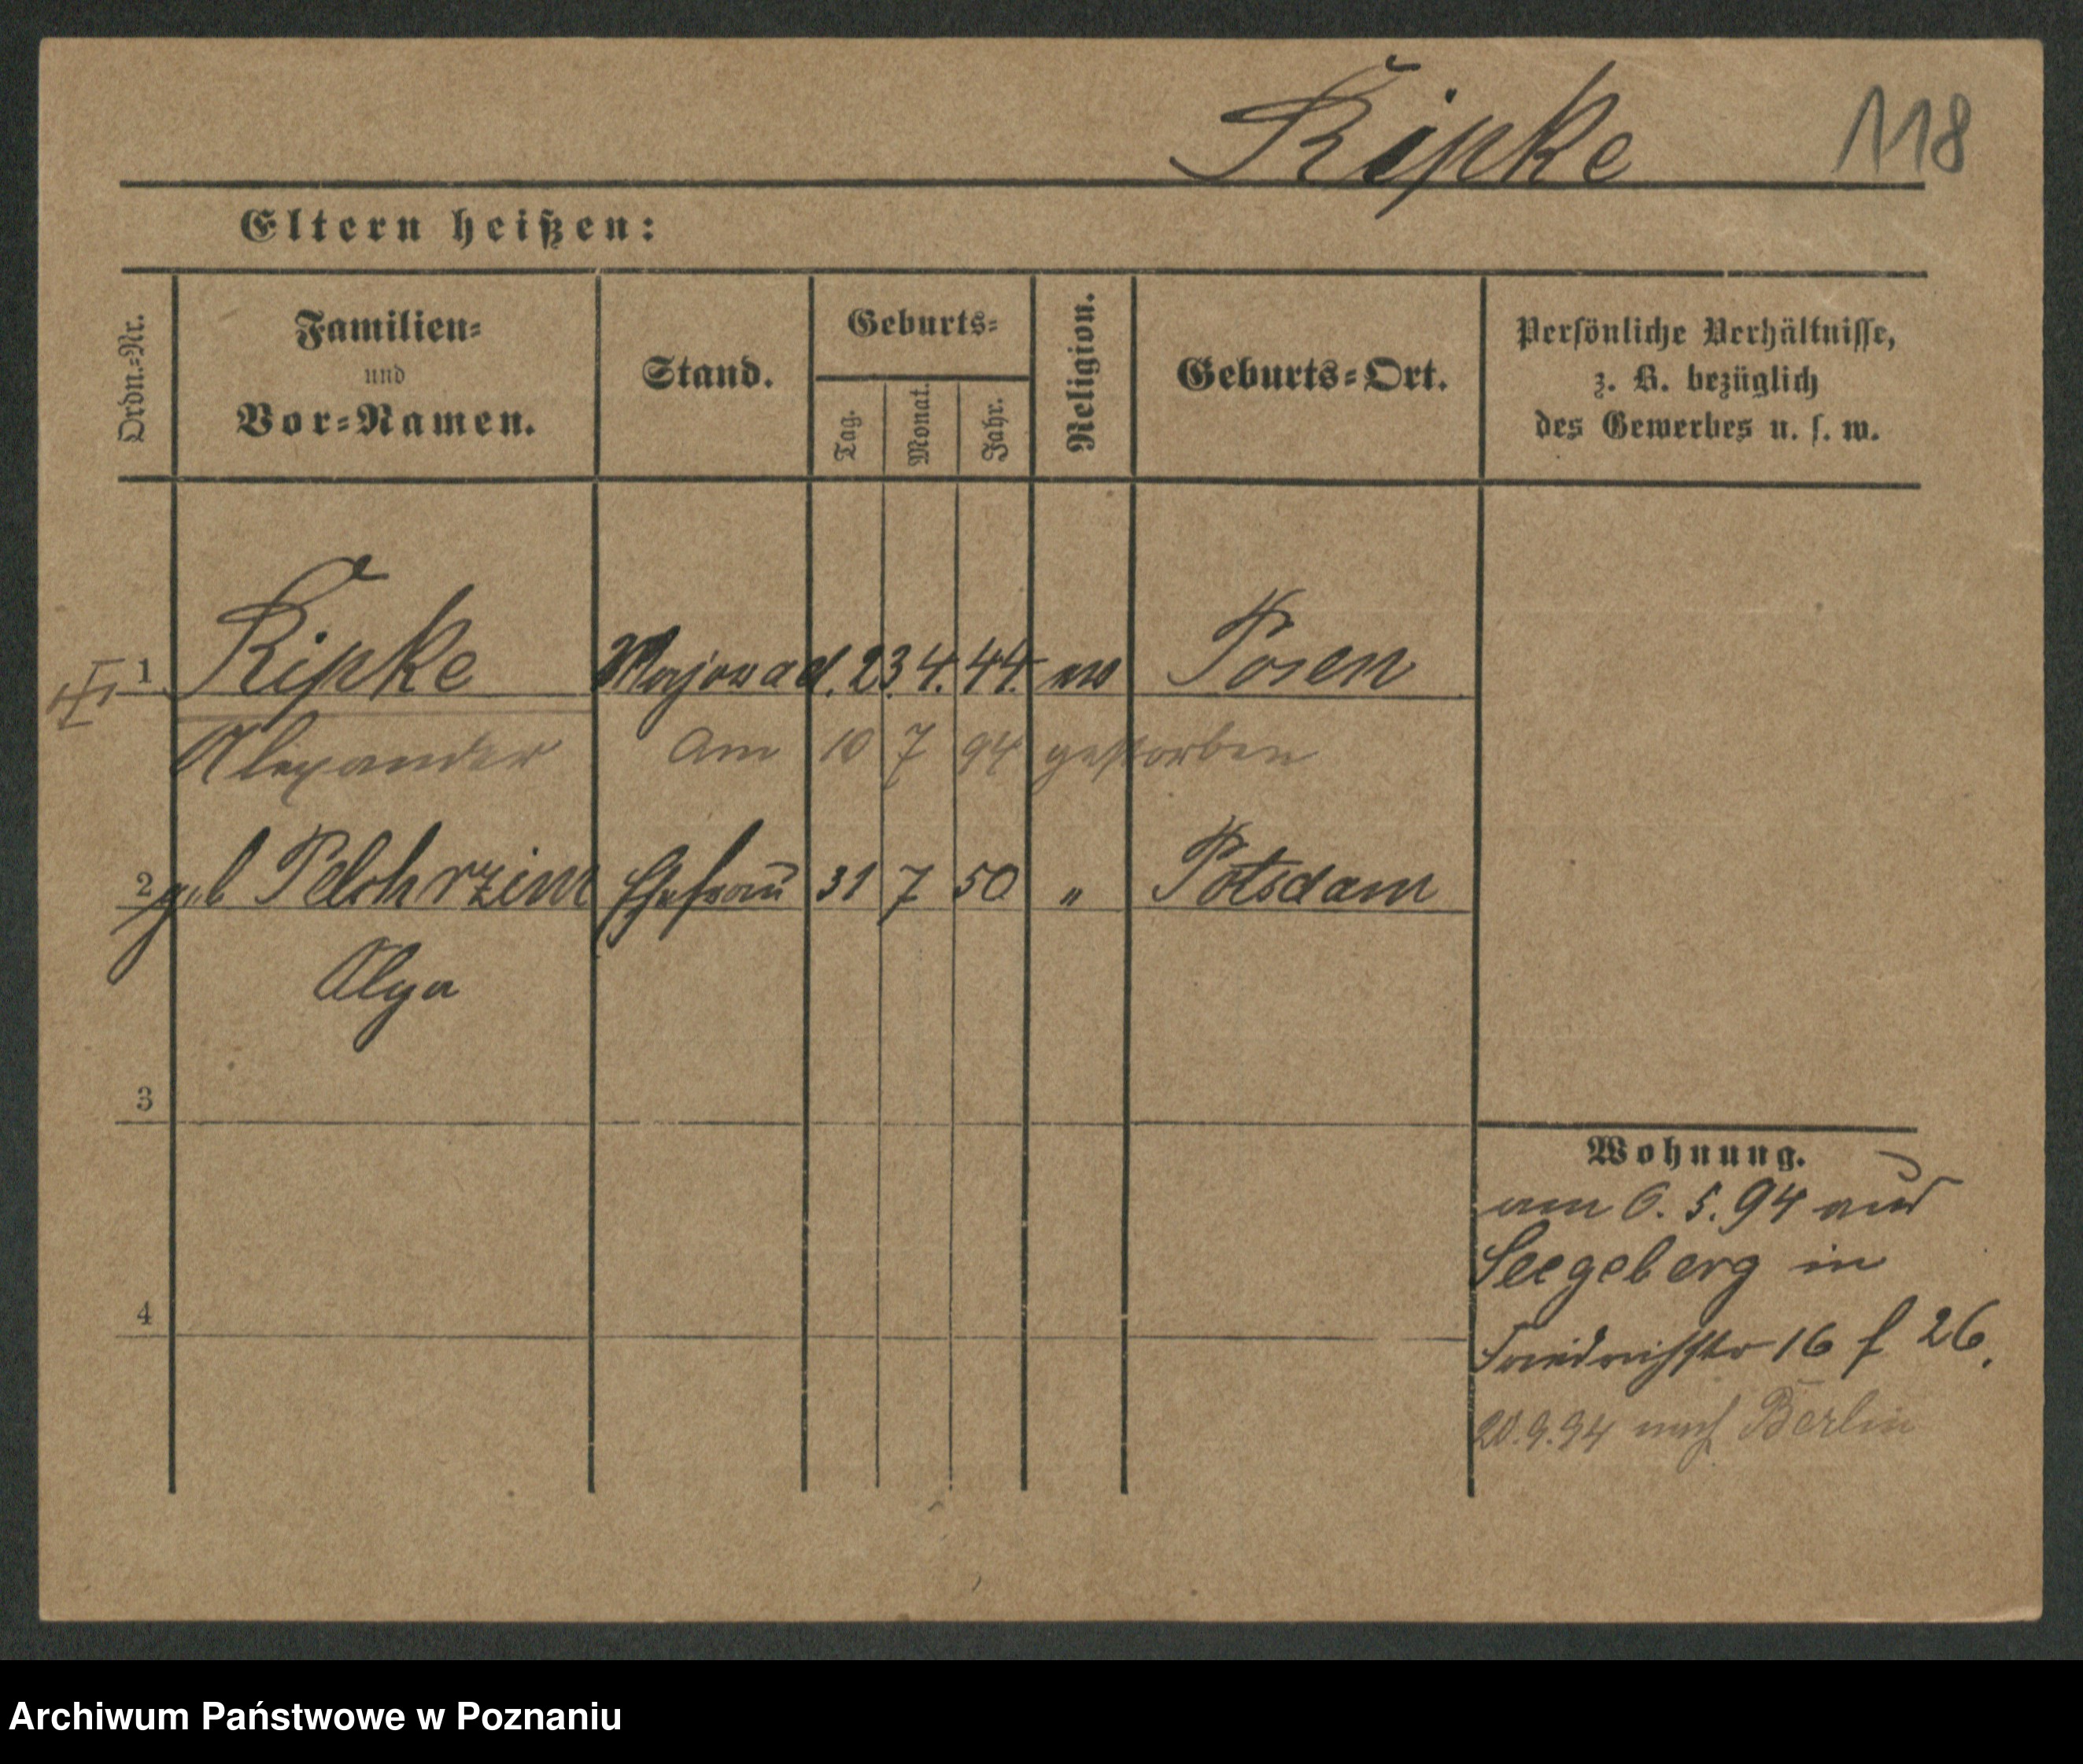 Ripke 118
Eltern heißen:
Ordn.-Nr.
Familien-
und
Vor-Namen.
Stand.
Geburts-
Tag.
Monat.
Jahr.
Religion.
Geburts-Ort.
Persönliche Verhältnisse,
z. B. bezüglich
des Gewerbes u. s. w.
1 Ripke Major a d. 23 4. 44. ev Posen
Alexander am 10 7 94 gestorben
2 geb Pelchrzim Ehefrau 31 7 50 " Potsdam
Olga
3
4
Wohnung.
am 6. 5. 94 aus
Seegeberg in
Friedrichstr 16 f 26.
20.9.94 nach Berlin
Archiwum Państwowe w Poznaniu